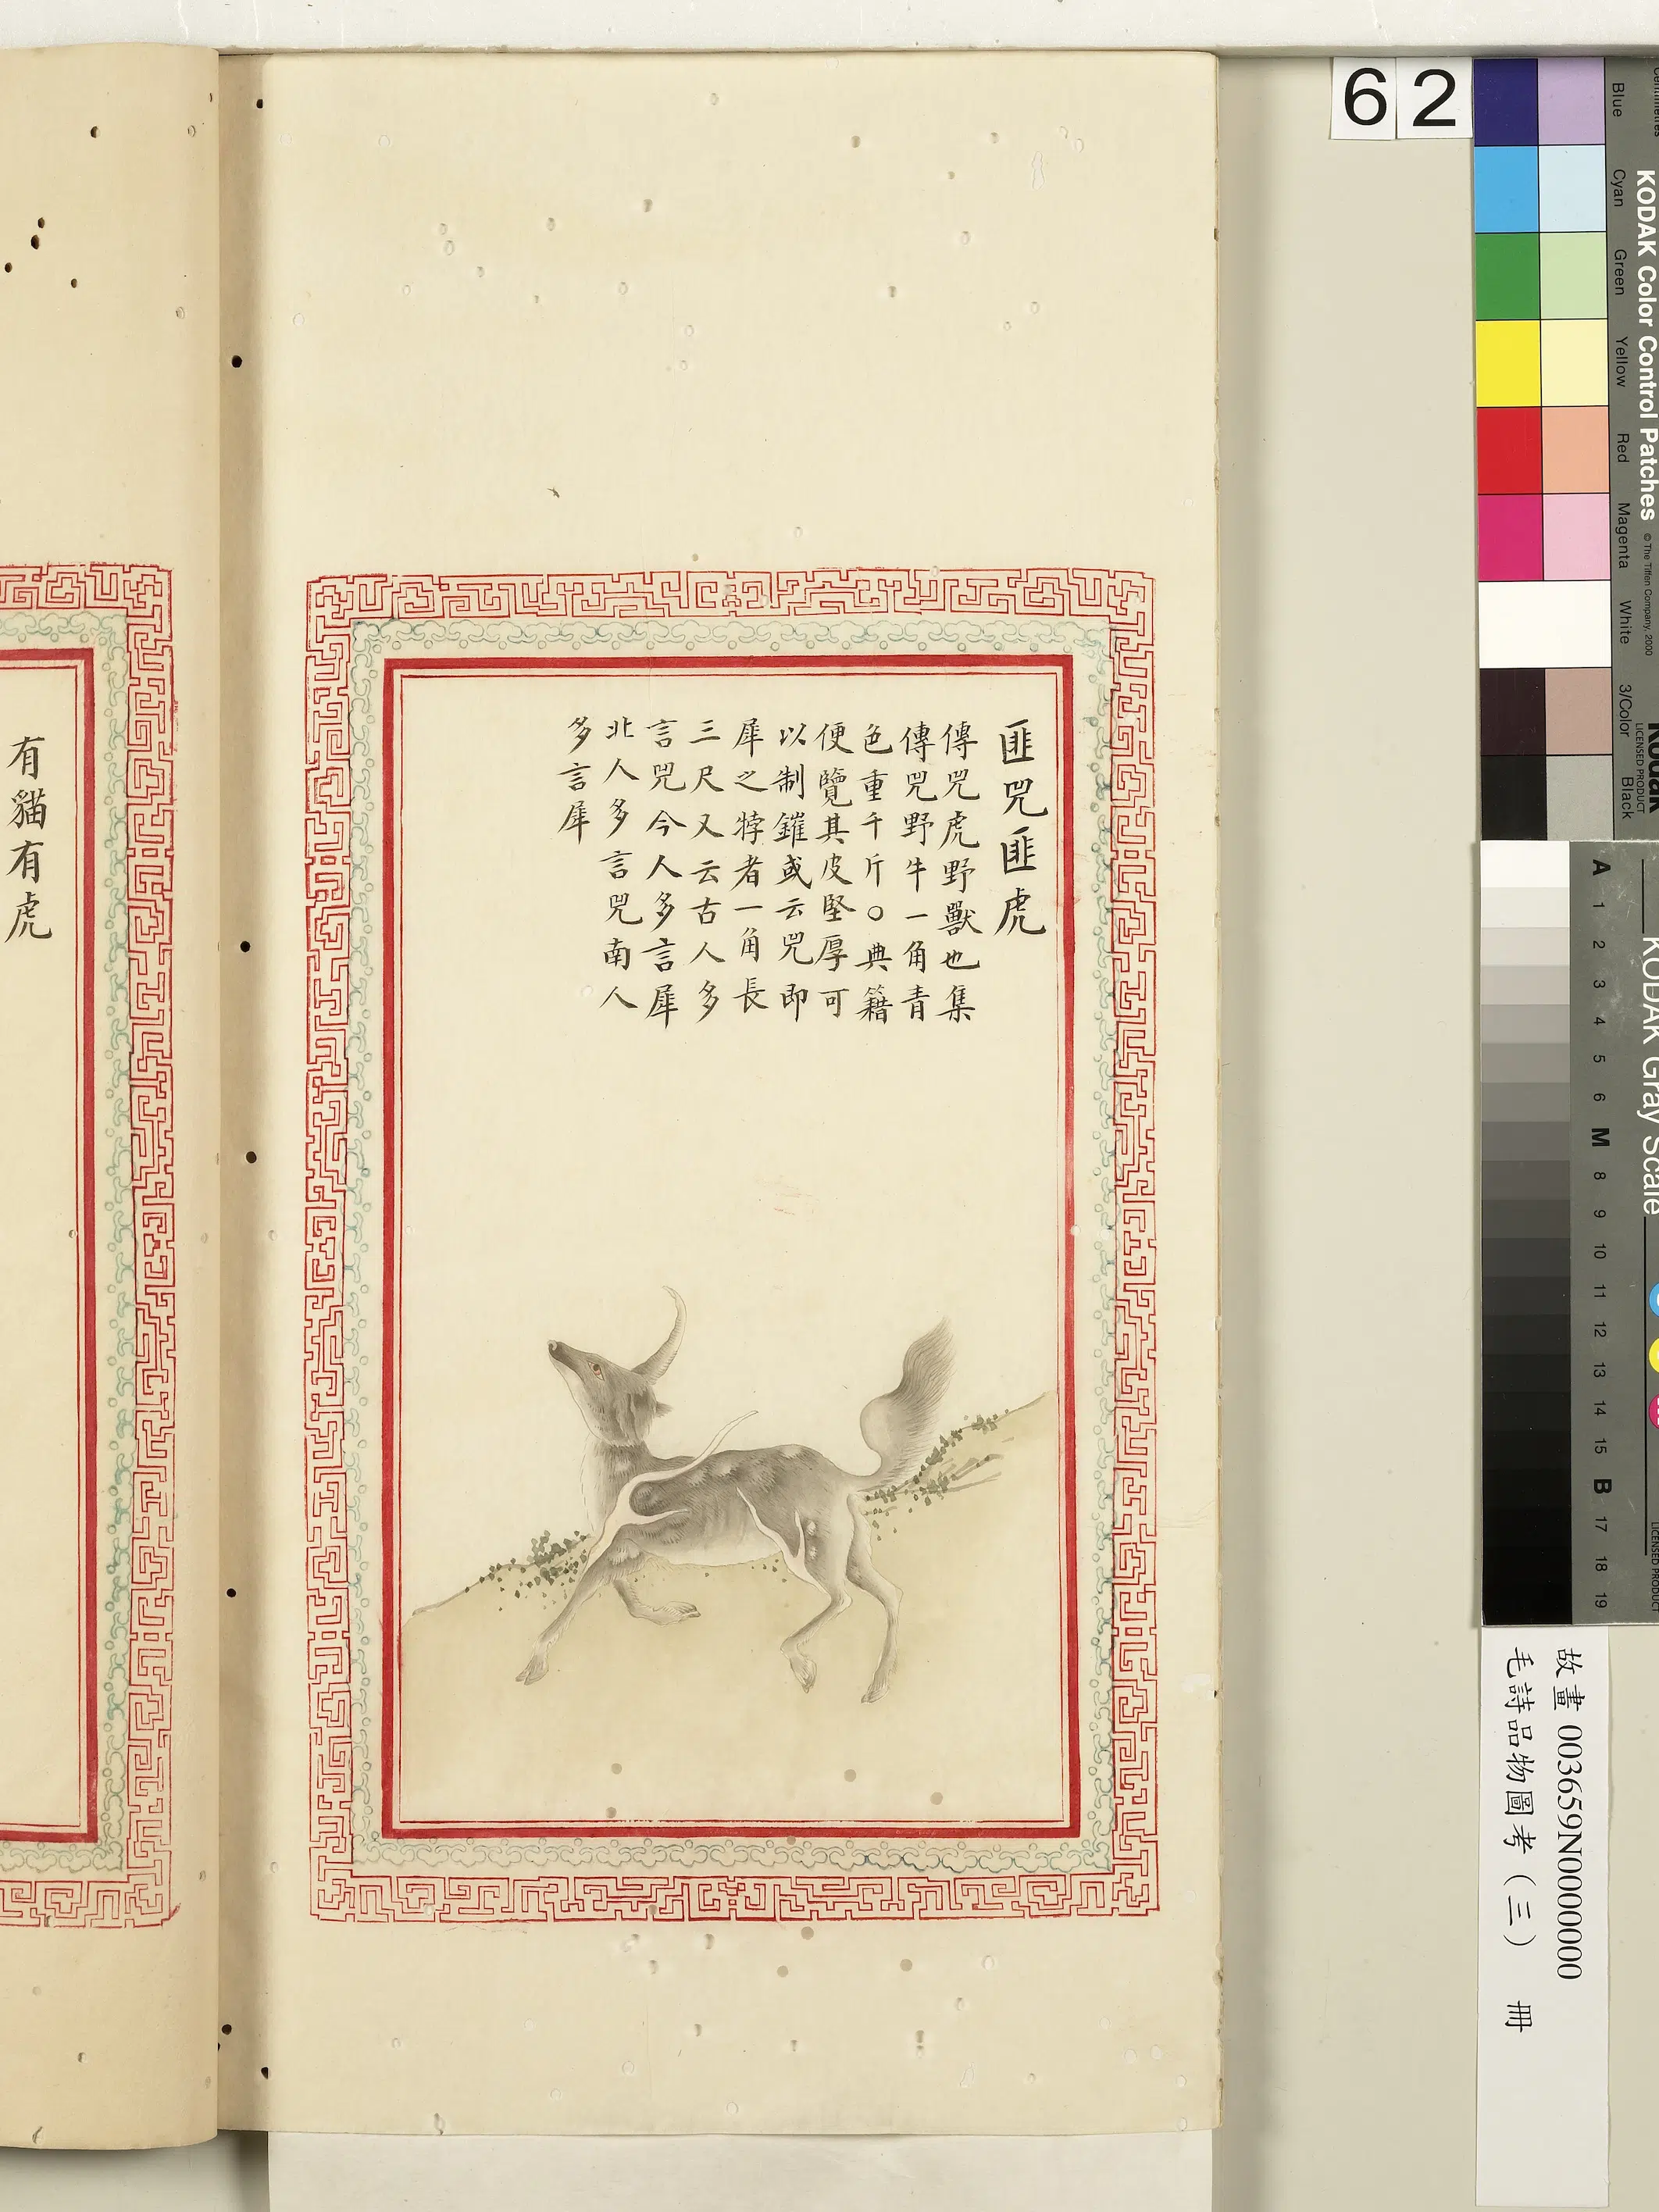 匪兕匪虎
傳兕虎野獸也集
傳兕野牛一角青
色重千斤○典籍
便覽其皮堅厚可
以制鎧或云兕即
犀之牸者一角長
三尺又云古人多
言兕今人多言犀
北人多言兕南人
多言犀
有貓有虎
62
Centimetres
Blue
Cyan
Green
Yellow
Red
Magenta
White
3/Color
Black
KODAK Color Control Patches
© The Tiffen Company, 2000
Kodak
LICENSED PRODUCT
KODAK Gray Scale
A 1 2 3 4 5 6 M 8 9 10 11 12 13 14 15 B 17 18 19
LICENSED PRODUCT
故畫 003659N000000000
毛詩品物圖考(三) 冊